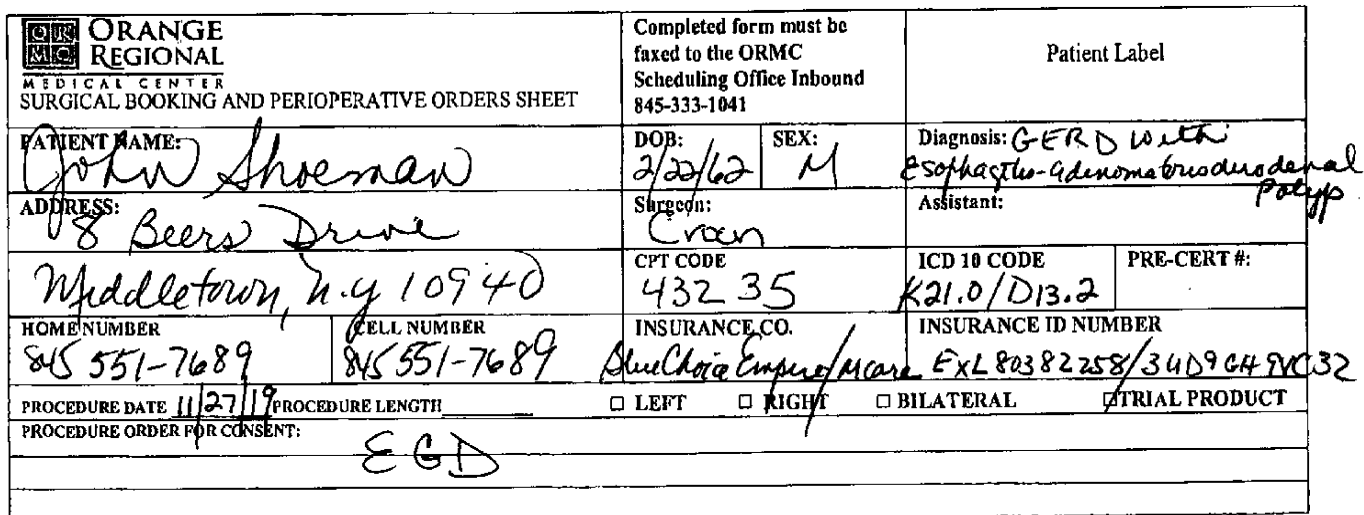 ORMC ORANGE REGIONAL
MEDICAL CENTER
SURGICAL BOOKING AND PERIOPERATIVE ORDERS SHEET
Completed form must be
faxed to the ORMC
Scheduling Office Inbound
845-333-1041
Patient Label
PATIENT NAME: John Shoeman
DOB: 2/22/62
SEX: M
Diagnosis: GERD with
Esophagitis-adenomatous duodenal
Polyp
ADDRESS: 8 Beers Drive
Surgeon: Croen
Assistant:
Middletown, N.Y 10940
CPT CODE 43235
ICD 10 CODE K21.0/D13.2
PRE-CERT #:
HOME NUMBER 845 551-7689
CELL NUMBER 845 551-7689
INSURANCE CO. Blue Choice Empire/Mcare
INSURANCE ID NUMBER ExL80382258/3UD9GH9VC32
PROCEDURE DATE 11/27/19 PROCEDURE LENGTH
□ LEFT □ RIGHT □ BILATERAL □ TRIAL PRODUCT
PROCEDURE ORDER FOR CONSENT:
EGD